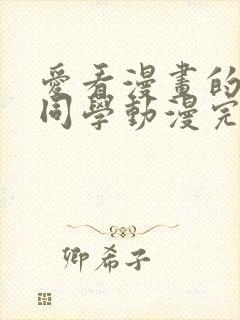 愛看漫畫的
同學動漫完
卿希子